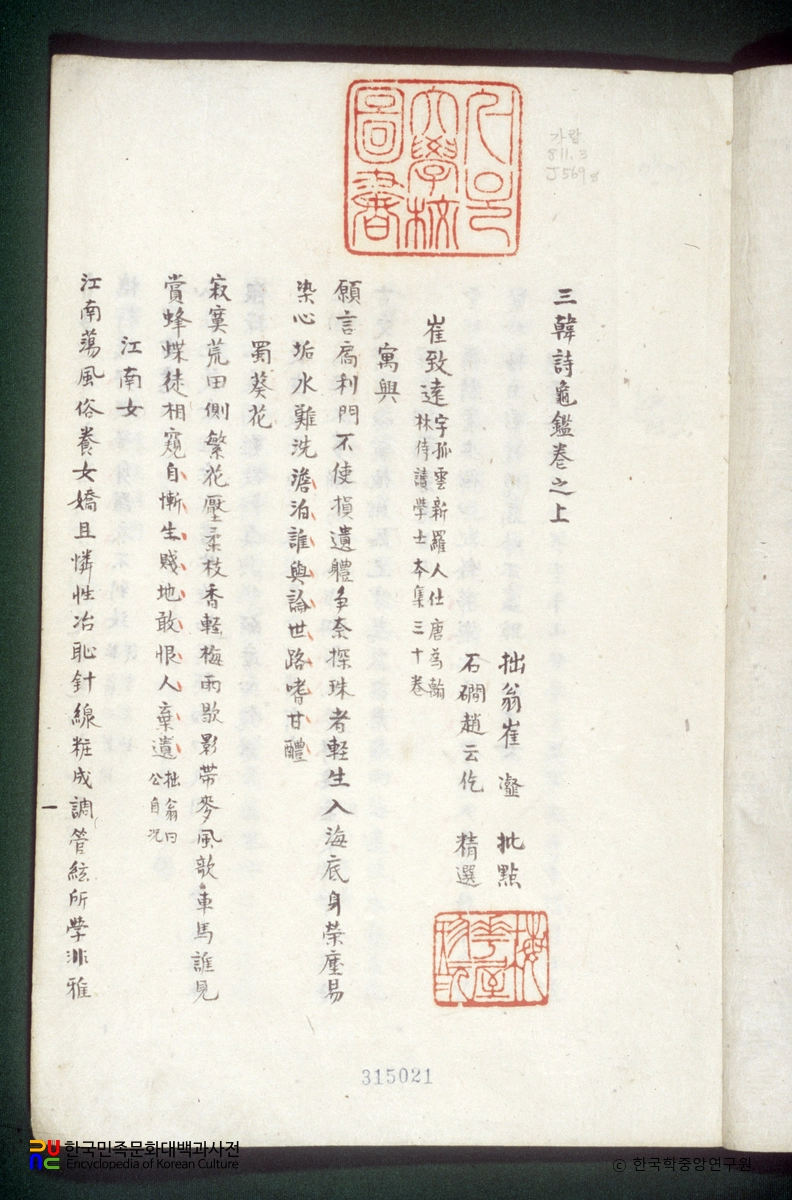 서울
大學校
圖書
가람
811.3
J569s
三韓詩龜鑑卷之上
拙翁崔瀣批點
石磵趙云仡精選
崔致遠
字孤雲新羅人仕唐為翰
林侍讀學士本集三十卷
寓興
願言扃利門不使損遺體争奈探珠者輕生入海底身榮塵易
染心垢水難洗澹泊誰與論世路嗜甘醴
蜀葵花
寂寞荒田側繁花壓柔枝香輕梅雨歇影帶麥風欹車馬誰見
賞蜂蝶徒相窺自慚生賤地敢恨人棄遺
拙翁曰
公自况
江南女
江南蕩風俗養女嬌且憐性冶恥針線粧成調管絃所學非雅
一
315021
한국민족문화대백과사전
Encyclopedia of Korean Culture
ⓒ 한국학중앙연구원